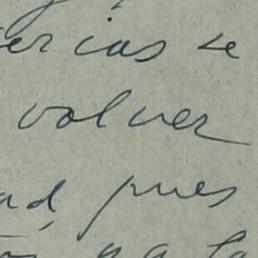 erias se
volver
ad, pues
ya la